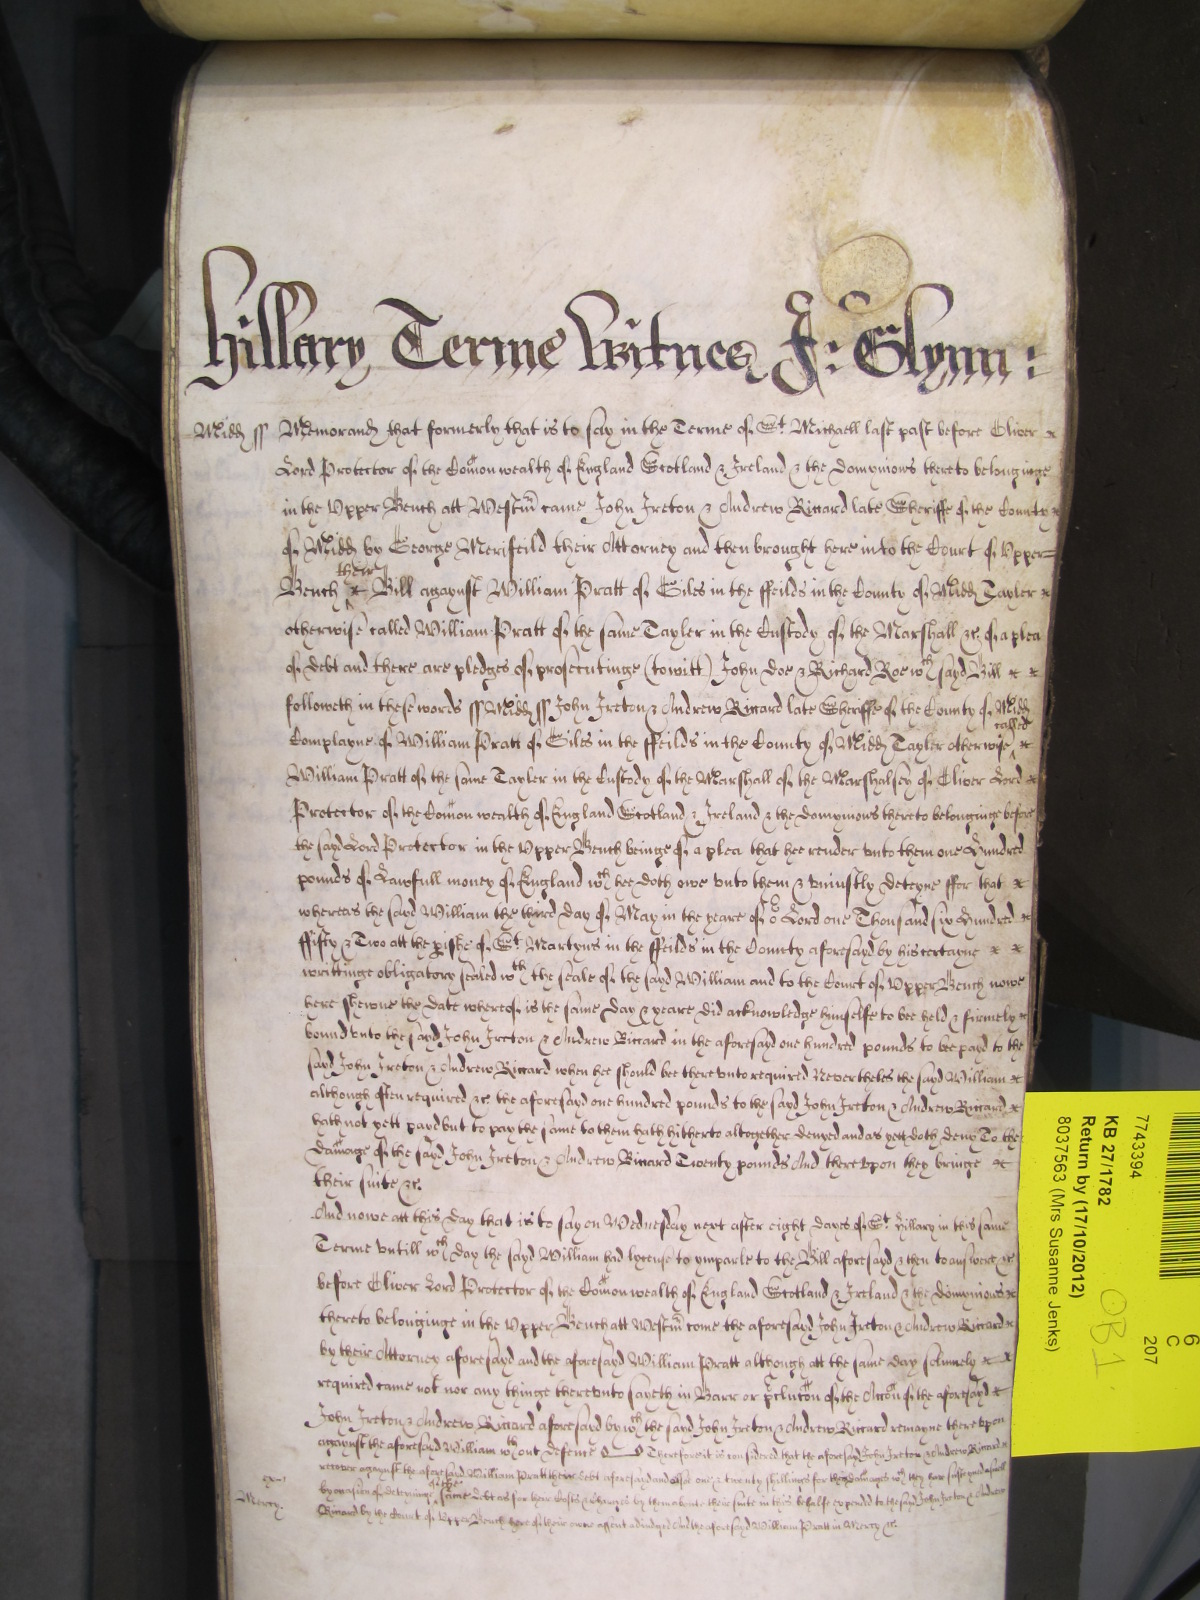 Hillary Terme Witnes J: Glynn:
Midd ss Memorand that formerly that is to say in the Terme of St Michaell last past before Oliver
Lord Protector of the Comon wealth of England Scotland & Ireland & the Dominions thereto belonginge
in the Upper Bench att Westm came John Ireton & Andrew Riccard late Sheriffe of the County
of Midd by George Merifeild their Attorney and then brought here into the Court of Upper
their
Bench Bill agaynst William Pratt of Giles in the ffeilds in the County of Midd Tayler
otherwise called William Pratt of the same Tayler in the Custody of the Marshall &c of a plea
of debt and there are pledges of prosecutinge (towitt) John Doe & Richard Roe wch sayd Bill
followeth in these words ss Midd ss John Ireton & Andrew Riccard late Sheriffe of the County of Midd
called
Complayne of William Pratt of Giles in the ffeilds in the County of Midd Tayler otherwise
William Pratt of the same Tayler in the Custody of the Marshall of the Marshalsey of Oliver Lord
Protector of the Comon wealth of England Scotland & Ireland & the Domynions thereto belonginge before
the sayd Lord Protector in the Upper Bench beinge of a plea that hee render unto them one Hundred
pounds of Lawfull money of England wch hee doth owe unto them & uniustly deteyne ffor that
whereas the sayd William the third day of May in the yeare of or Lord one Thousand six Hundred
ffifty & Two att the pishe of St Martyns in the ffeilds in the County aforesayd by his certayne
writtinge obligatory sealed wth the seale of the sayd William and to the Court of Upper Bench nowe
here shewne the date whereof is the same day & yeare did acknowledge himselfe to bee held & firmely
bound unto the sayd John Ireton & Andrew Riccard in the aforesayd one hundred pounds to bee payd to the
sayd John Ireton & Andrew Riccard when hee should bee thereunto required Neverthelés the sayd William
although often required &c the aforesayd one hundred pounds to the sayd John Ireton & Andrew Riccard
hath not yett payd but to pay the same to them hath hitherto altogether denyed and as yett doth deny To the
Damage of the sayd John Ireton & Andrew Riccard Twenty pounds And thereupon they bringe
their suite &c.
And nowe att this day that is to say on Wednesday next after eight dayes of St Hillary in this same
Terme untill wch day the sayd William had lycense to ymparle to the Bill aforesayd & then to answere &c
before Oliver Lord Protector of the Comon wealth of England Scotland & Ireland & the dominions
thereto belonginge in the Upper Bench att Westm come the aforesayd John Ireton & Andrew Riccard
by their Attorney aforesayd and the aforesayd William Pratt although att the same day solemnely
required came not nor any thinge thereunto sayeth in Barr or pclucon of the Accon of the aforesayd
John Ireton & Andrew Riccard aforesayd by wch the sayd John Ireton & Andrew Riccard remayne thereupon
agaynst the aforesayd William wthout defense Therefore it is considered that the aforesayd John Ireton & Andrew Riccard
recover agaynst the aforesayd William Pratt their debt aforesayd and alsoe one & twenty shillings for their damages wch they have susteyned aswell
by occasion of deteyninge of the same debt as for their Costs & Charges by them about their suite in this behalfe expended to the sayd John Ireton & Andrew
Riccard by the Court of Upper Bench here of their owne assent adiudged And the aforesayd William Pratt in Mercy &c.
Mercy.
7743394
KB 27/1782
Return by (17/10/2012)
8037563 (Mrs Susanne Jenks)
OB1
6
C
207